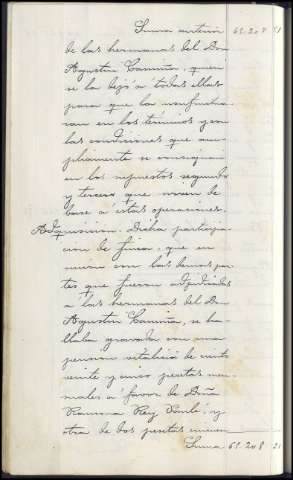 Suma anterior 69.208 21
de las hermanas del Don
Agustin Camiña, quien
se la dejó á todas ellas
para que la usufructua
ran en los términos y con
las condiciones que am-
pliamente se consignan
en los supuestos segundo
y tercero que sirven de
base a estas operaciones.
Adquisicion. Dicha participa
cion de finca, que en
union con las demas par
tes que fueron adjudicadas
á las hermanas del Don
Agustin Camiña, se ha-
llaba gravada con una
pension vitalicia de ciento
veinte y cinco pesetas men
suales á favor de Doña
Ramona Rey, y
otra de dos pesetas
Suma 69.208 21